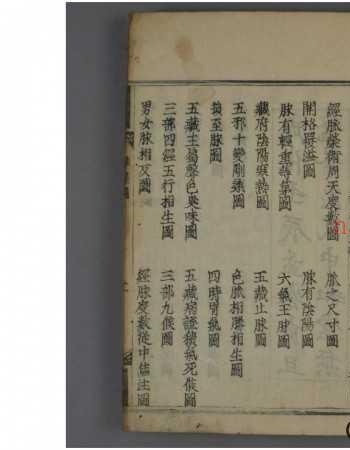 經脉榮衛周天度數圖
脉之尺寸圖
關格覆溢圖
脉有陰陽圖
脉有輕重圖
六氣王脉圖
藏府陰陽寒熱圖
五藏止脉圖
五邪十變剛柔圖
色脉相勝相生圖
損至脉圖
四時胃氣圖
五藏主聲色臭味圖
五藏府證積氣死候圖
三部四經五行相生圖
三部九候圖
男女脉相反圖
經脉度數從中焦注圖